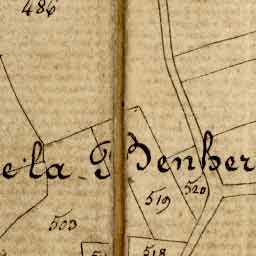 486
e la Benher
519
520
503
518